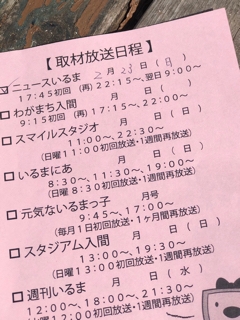 【取材放送日程】
☑ニュースいるま 2月23日(日)
17:45初回 (再) 22:15~、翌日9:00~
□わがまち入間 月 日( )
9:15初回 (再) 17:15~、22:00~
□スマイルスタジオ 月 日(日)
11:00~、22:30~
(日曜11:00初回放送・1週間再放送)
□いるまにあ 月 日(日)
8:30~、11:30~、19:00~
(日曜8:30初回放送・1週間再放送)
□元気ないるまっ子 月号
9:45~、17:00~
(毎月1日初回放送・1ヶ月間再放送)
□スタジアム入間 月 日(日)
13:00~、19:30~
(日曜13:00初回放送・1週間再放送)
□週刊いるま 月 日(水)
12:00~、18:00~、21:30~
12:00初回放送・1週間再放送)